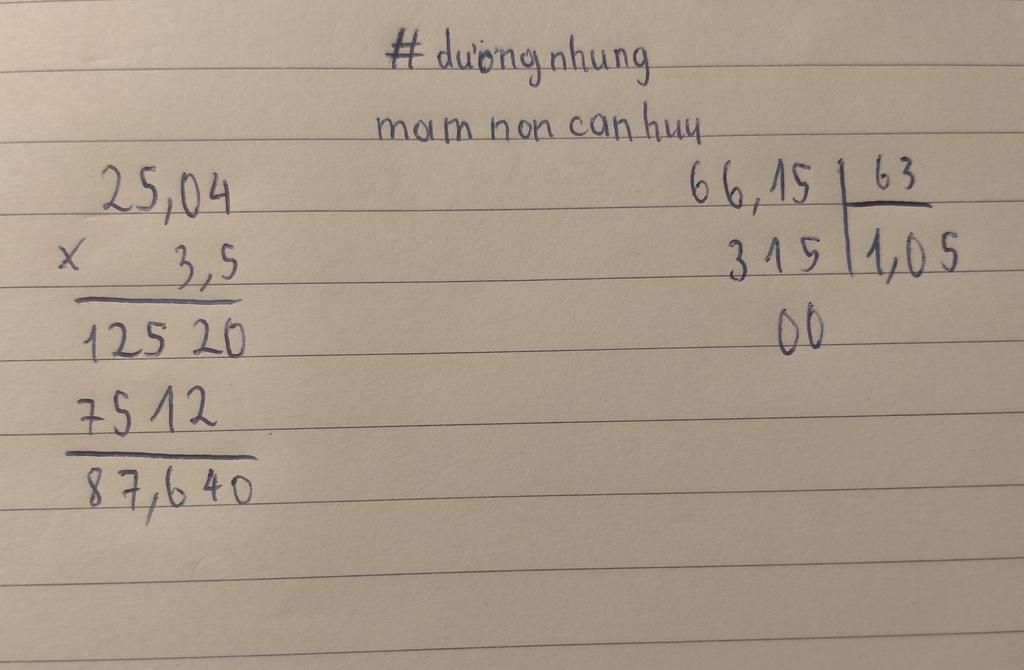 # dương nhung
mam non can huy
25,04
x 3,5
12520
7512
87,640
66,15 63
315 1,05
00